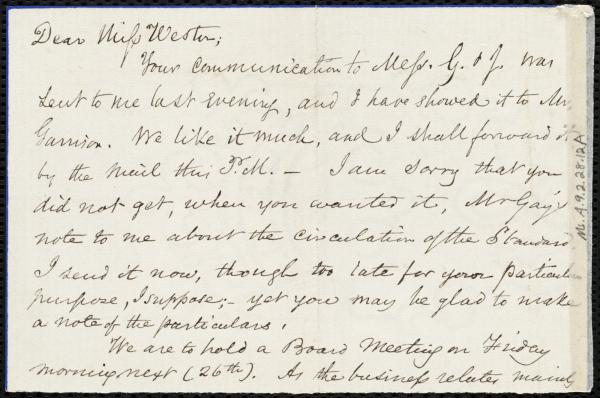 Dear Miss Weston;
Your communication to Mess. G. & J. was
sent to me last evening, and I have showed it to Mr.
Garrison. We like it much, and I shall forward it
by the mail this P.M. — I am sorry that you
did not get, when you wanted it, Mr Gay's
note to me about the circulation of the Standard.
I send it now, though too late for your particular
purpose, I suppose; - yet you may be glad to make
a note of the particulars.
We are to hold a Board Meeting on Friday
morning next (26th). As the business relates mainly
Ms. A. 9. 2. 28. 12A